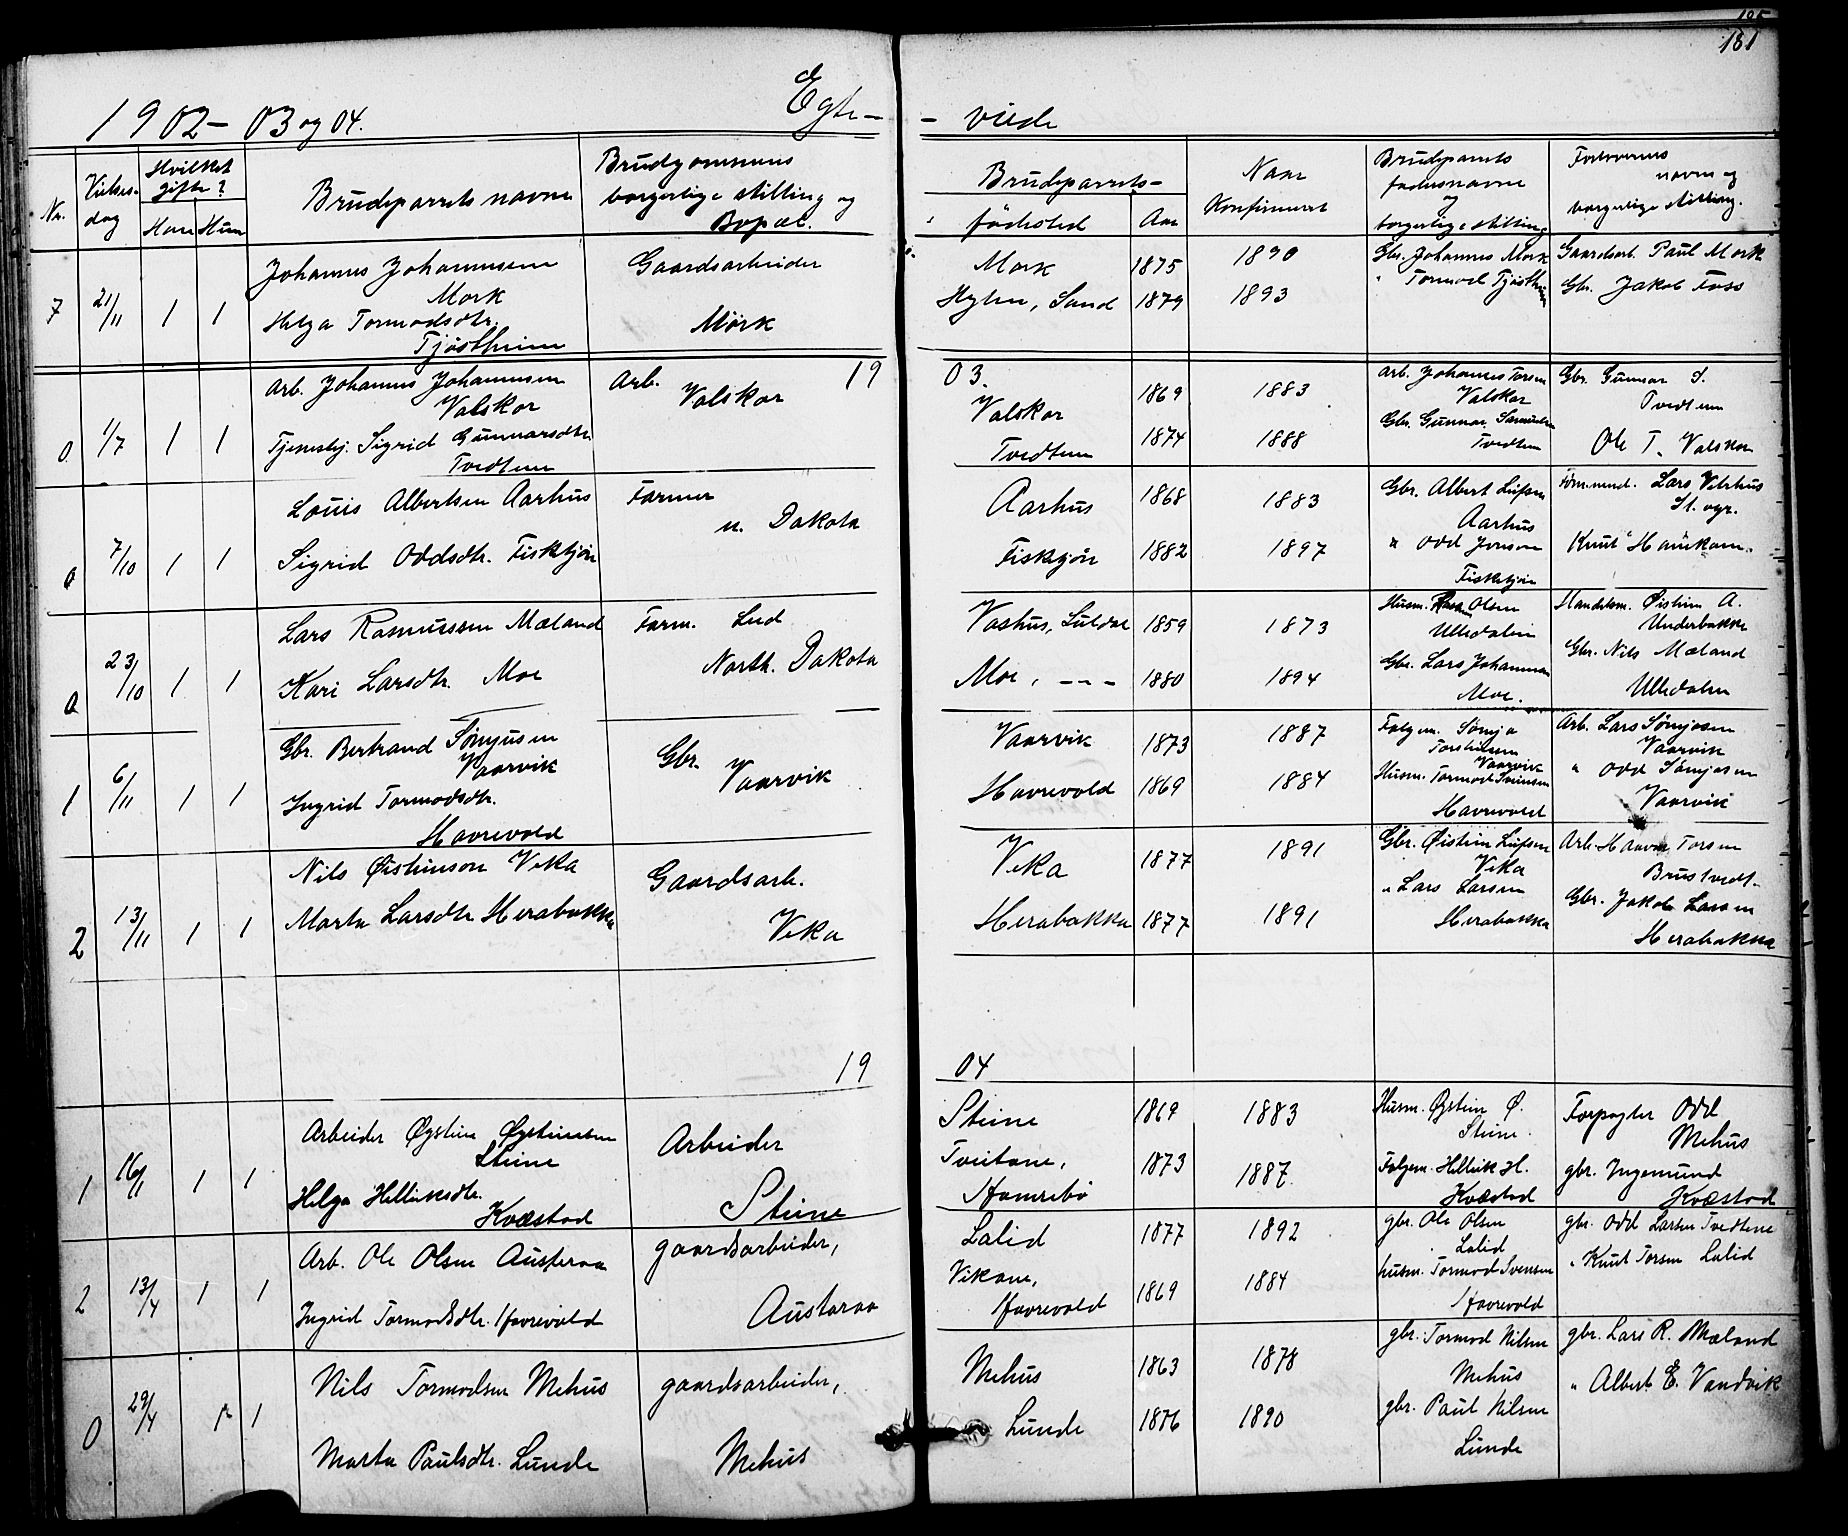 181
1902-03 og 04.
Egte-
- viede
Nr.
Vielses-
dag
Hvilket
gifte?
Han
Hun
Brudeparrets navne
Brudgommens
borgerlige stilling og
Bopæl.
Brudeparrets-
fødested
Aar
Naar
Konfirmeret
Brudeparrets
fædrenavne
og
borgerlige stilling
Forlovernes
navne og
borgerlige stilling.
7 21/11 1 1
Johannes Johannesen
Mork
Helga Tormodsdtr.
Tjøstheim
Gaardsarbeider
Mork
Mork 1875 1890
Hylen, Sand 1879 1893
Gbr. Johannes Mork
" Tormod Tjøstheim
Gaardsarb. Paul Mork
Gbr. Jakob Foss
19 03.
0 1/7 1 1
Arb. Johannes Johannesen
Valskor
Tjenestepj. Sigrid Gunnarsdtr.
Tvedten
Arb.
Valskor
Valskor 1869 1883
Tvedten 1874 1888
Arb. Johannes Torsen
Valskor
Gbr. Gunnar Samuelsen
Tvedten
Gbr. Gunnar S.
Tvedten
Ole T. Valskor
0 7/10 1 1
Louis Albertsen Aarhus
Sigrid Oddsdtr. Fisketjøn
Farmer
n. Dakota
Aarhus 1868 1883
Fisketjøn 1882 1897
Gbr. Albert Leifsen
Aarhus
" Odd Jonson
Fisketjøn
Tømmend. Lars Velehus
Knut Haukom.
0 23/10 1 1
Lars Rasmussen Mæland
Kari Larsdtr. Moe
Farm.
North. Dakota
Vashus, Suldal 1859 1873
Moe, - - - 1880 1894
Husm. Olsen
Ulledalen
Gbr. Lars Johannesen
Moe.
Handelsm. Øistein A.
Underbakke
Gbr. Nils Mæland
Ulledalen
1 6/11 1 1
Gbr. Bertrand Sønjusen
Vaarvik
Ingrid Tormodsdtr.
Havrevold
Gbr.
Vaarvik
Vaarvik 1873 1887
Havrevold 1869 1884
Folgem. Sømja
Torstensen
Vaarvik
Husm. Tormod Svensen
Havrevold
Arb. Lars Sømjasen
Vaarvik
" Odd Sømjasen
Vaarvik
2 13/11 1 1
Nils Øisteinson Veka
Marta Larsdtr Herabakka
Gaardsarb.
Veka
Veka 1877 1891
Herabakka 1877 1891
Gbr. Øistein Leifsen
Veka
" Lars Larsen
Herabakka
Arb. Haavar Torsen
Brustvedt.
Gbr. Jakob Larsen
Herabakka
19 04
1 16/1 1 1
Arbeider Øystein Øysteinsen
Steine
Helga Helliksdtr.
Kvæstad
Arbeider
Steine
Steine 1869 1883
Tveitane,
Hamrebø 1873 1887.
Husm. Øystein Ø.
Steine.
Folgem. Hellik H.
Kvæstad
Forpagter Odd
Mehus
gbr. Ingemund
Kvæstad
2 13/4 1 1
Arb. Ole Olsen Austaraa
Ingrid Tormodsdtr. Havrevold
gaardsarbeider,
Austaraa
Lalid 1877 1892
Vikane,
Havrevold 1869 1884
gbr. Ole Olsen
Lalid
husm. Tormod Svensen
Havrevold
gbr. Odd Larsen Tvedtene
" Knut Torsen Lalid
0 29/4 1
Nils Tormodsen Mehus
Marta Paulsdtr. Lunde
gaardsarbeider,
Mehus
Mehus 1863 1878
Lunde 1876 1890
gbr. Tormod Nilsen
Mehus
gbr. Paul Nilsen
Lunde
gbr. Lars R. Mæland
" Albert E. Vandvik